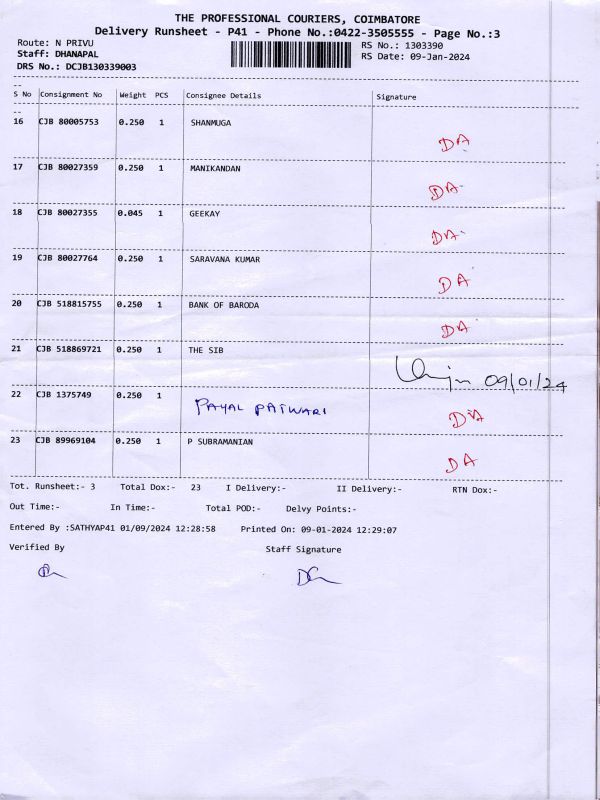 THE PROFESSIONAL COURIERS, COIMBATORE
Delivery Runsheet - P41 - Phone No.:0422-3505555 - Page No.:3
Route: N PRIVU
RS No.: 1303390
Staff: DHANAPAL
RS Date: 09-Jan-2024
DRS No.: DCJB130339003
S No Consignment No Weight PCS Consignee Details Signature
16 CJB 80005753 0.250 1 SHANMUGA
DA
17 CJB 80027359 0.250 1 MANIKANDAN
DA
18 CJB 80027355 0.045 1 GEEKAY
DA
19 CJB 80027764 0.250 1 SARAVANA KUMAR
DA
20 CJB 518815755 0.250 1 BANK OF BARODA
DA
21 CJB 518869721 0.250 1 THE SIB
09/01/24
22 CJB 1375749 0.250 1 PAYAL PATWARI
DA
23 CJB 89969104 0.250 1 P SUBRAMANIAN
DA
Tot. Runsheet:- 3 Total Dox:- 23 I Delivery:- II Delivery:- RTN Dox:-
Out Time:- In Time:- Total POD:- Delvy Points:-
Entered By :SATHYAP41 01/09/2024 12:28:58 Printed On: 09-01-2024 12:29:07
Verified By Staff Signature